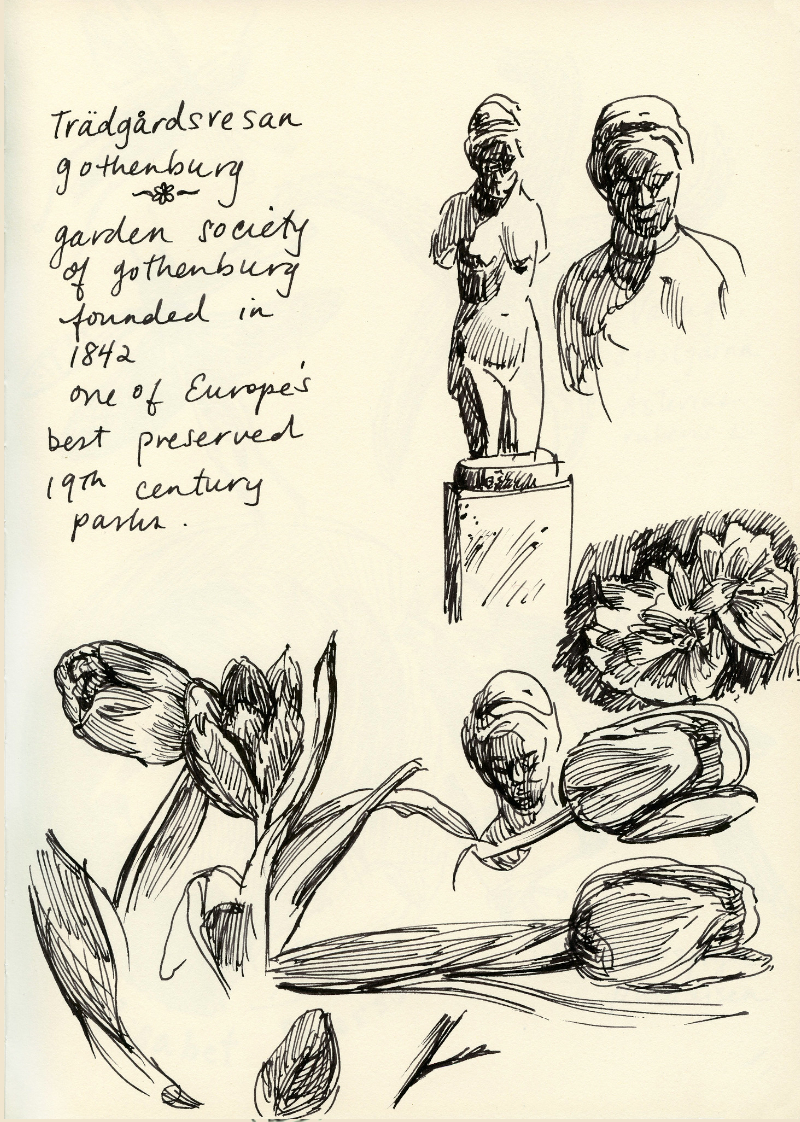 Trädgårdsresan
gothenburg
garden society
of gothenburg
founded in
1842
one of Europe's
best preserved
19th century
parks.